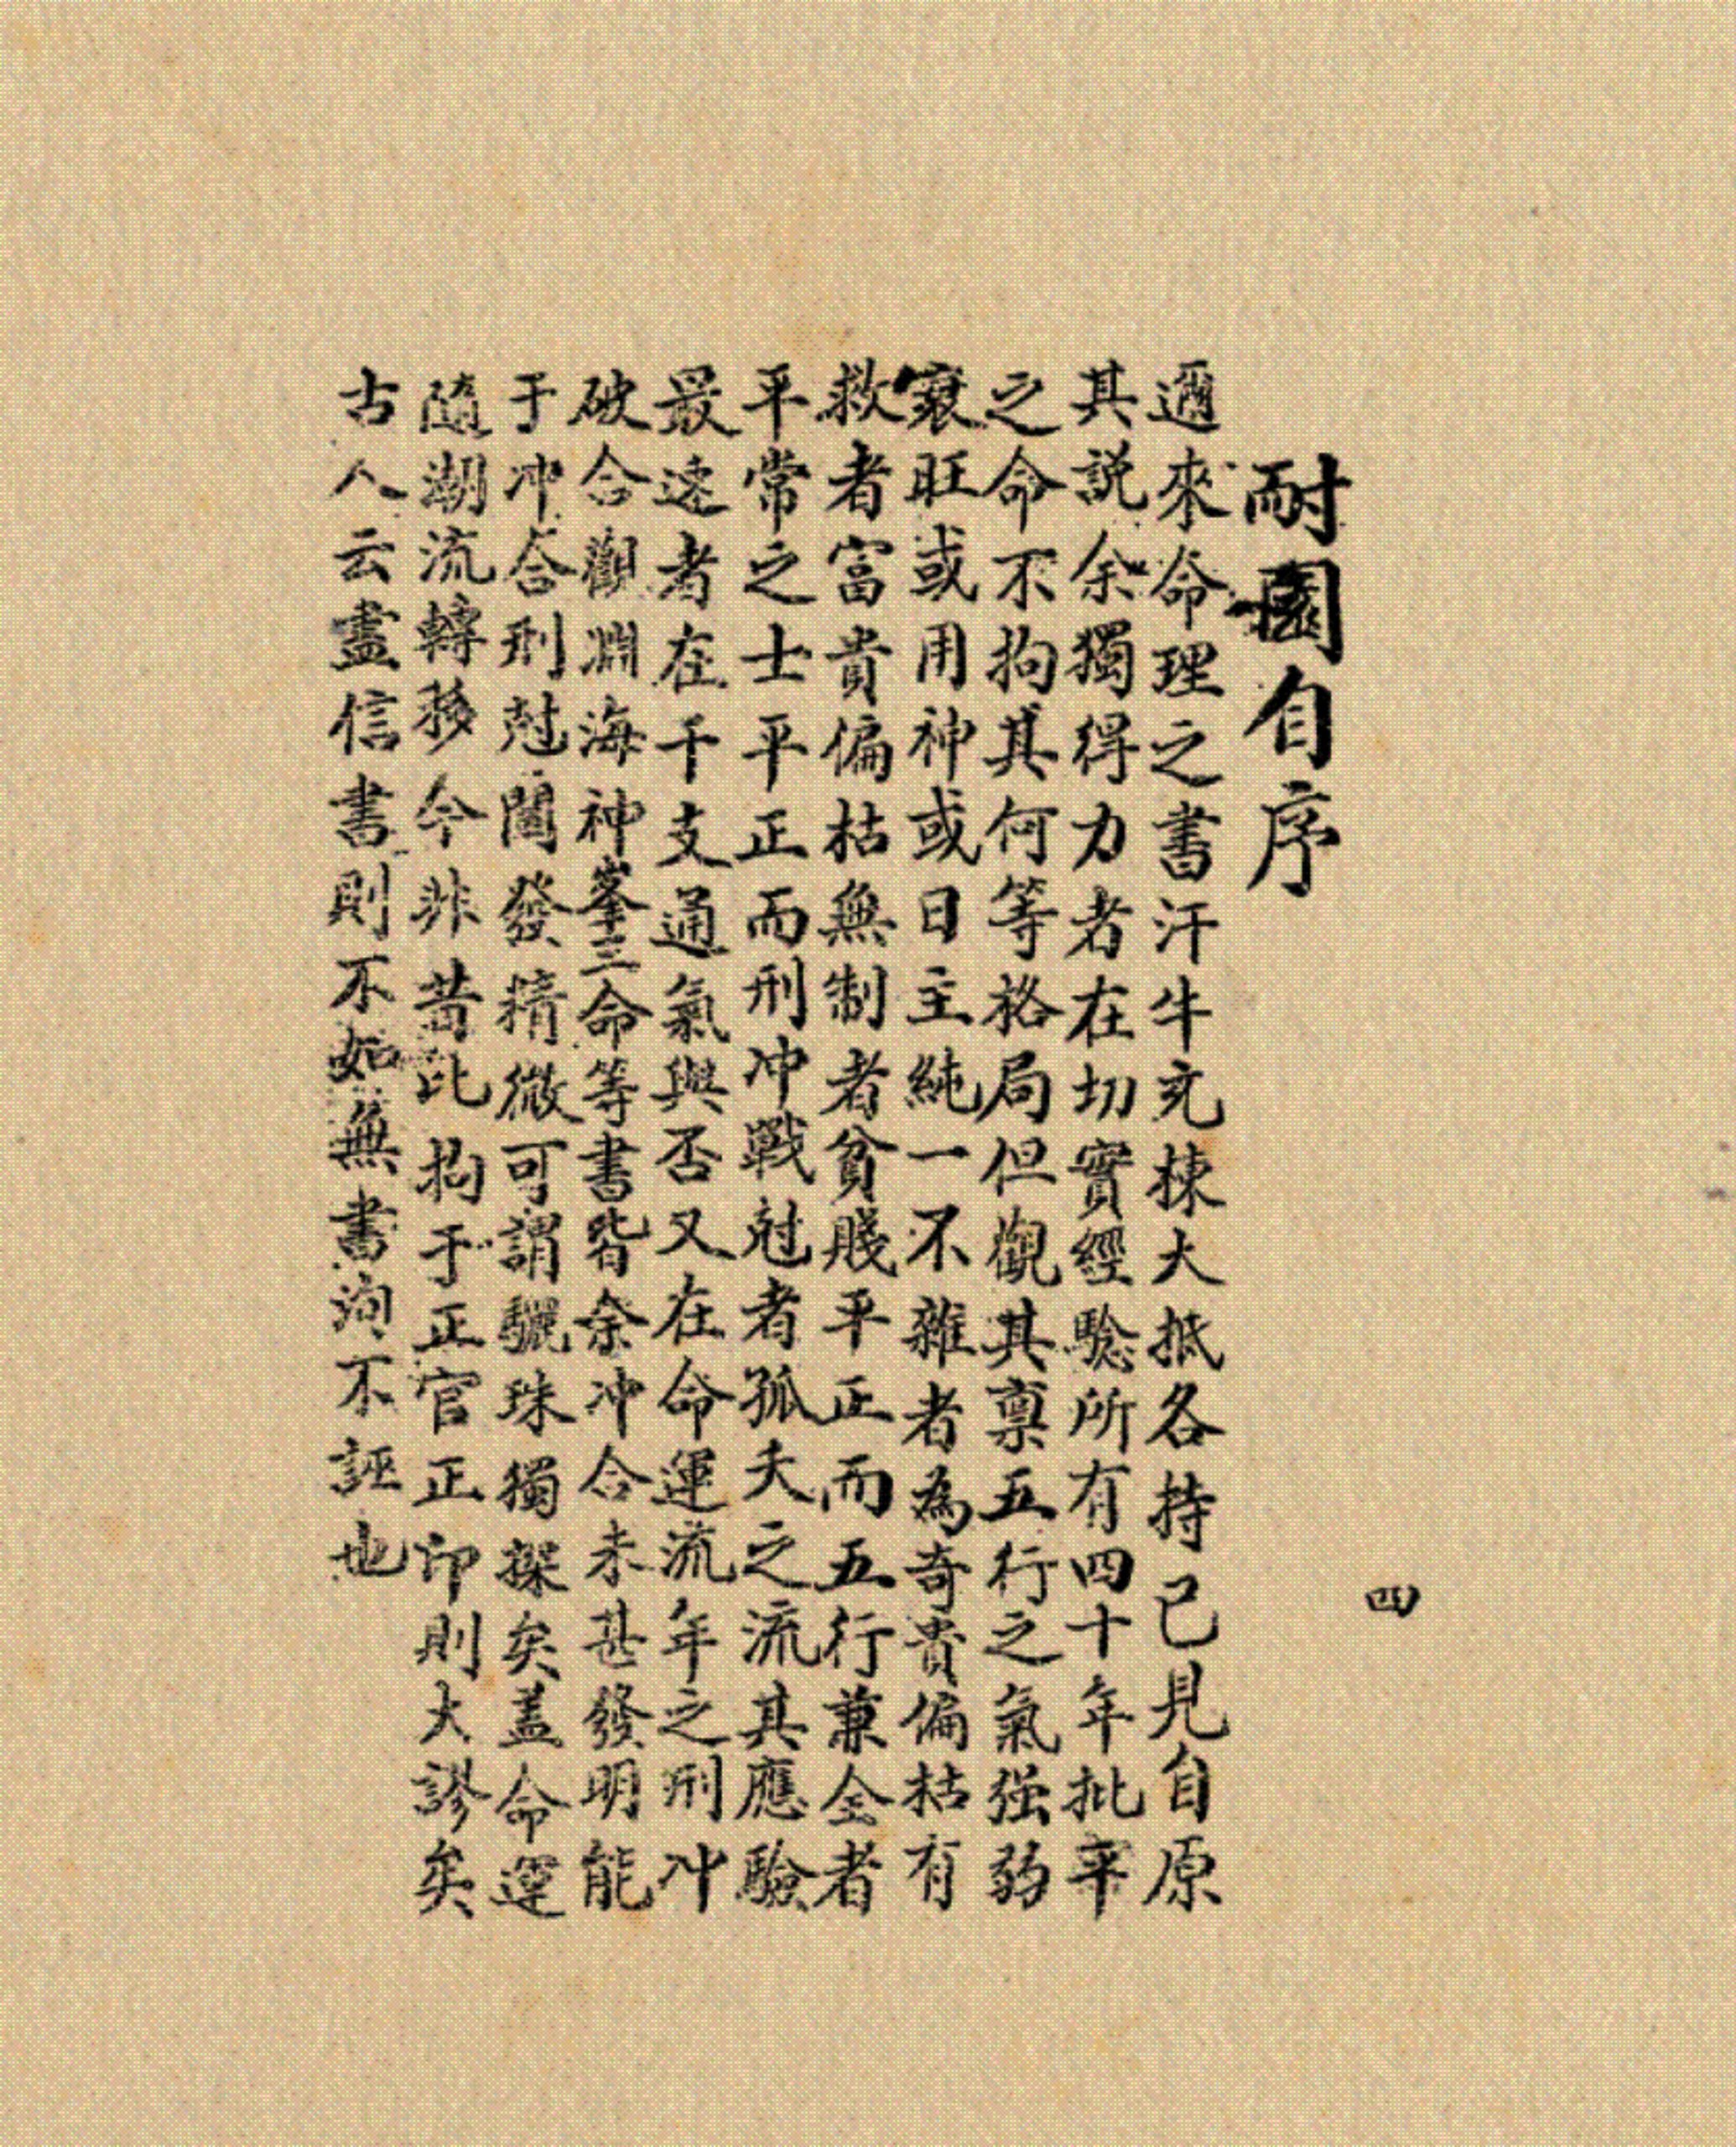 四
耐園自序
邇來命理之書汗牛充棟大抵各持己見自原
其説余獨得力者在切實經騐所有四十年批平
之命不拘其何等格局但觀其禀五行之氣强弱
衰旺或用神或日主純一不雜者為奇貴偏枯有
救者富貴偏枯無制者貧賤平正而五行兼全者
平常之士平正而刑冲戰尅者孤夭之流其應驗
最速者在干支通氣與否又在命運流年之刑冲
破合觀淵海神峯三命等書皆余冲合未甚發明能
于冲合刑尅闡發精微可謂驪珠獨探矣盖命運
隨潮流轉移今非昔比拘于正官正印則大謬矣
古人云盡信書則不如無書洵不誣也